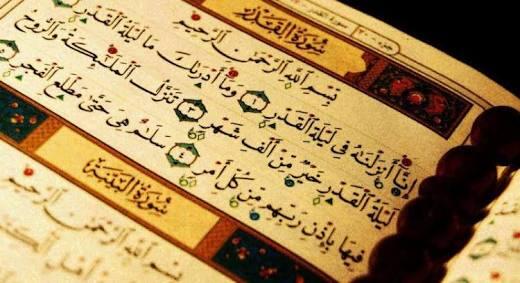 سُورَةُ القَدْرِ
بِسْمِ اللَّهِ الرَّحْمَٰنِ الرَّحِيمِ
إِنَّا أَنزَلْنَٰهُ فِي لَيْلَةِ الْقَدْرِ ١ وَمَا أَدْرَىٰكَ مَا لَيْلَةُ الْقَدْرِ
لَيْلَةُ الْقَدْرِ خَيْرٌ مِّنْ أَلْفِ شَهْرٍ ٣ تَنَزَّلُ الْمَلَٰٓئِكَةُ وَالرُّوحُ
فِيهَا بِإِذْنِ رَبِّهِم مِّن كُلِّ أَمْرٍ ٤ سَلَٰمٌ هِيَ حَتَّىٰ مَطْلَعِ الْفَجْرِ
سُورَةُ البَيِّنَةِ
بِسْمِ اللَّهِ الرَّحْمَٰنِ الرَّحِيمِ